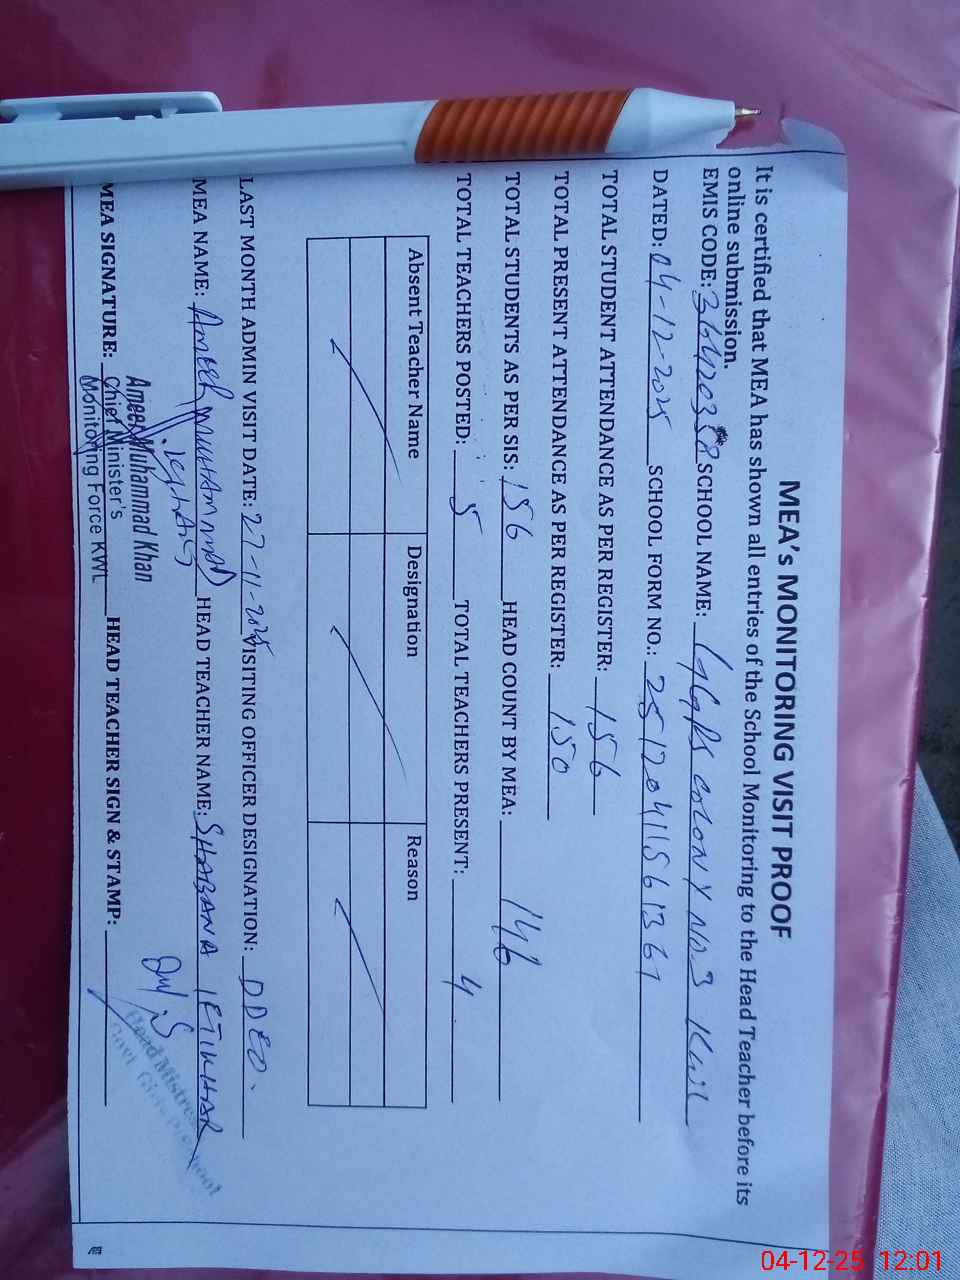 MEA's MONITORING VISIT PROOF
It is certified that MEA has shown all entries of the School Monitoring to the Head Teacher before its
online submission.
EMIS CODE: 36420338 SCHOOL NAME: GGPS COLONY NO.3 KWL
DATED: 04-12-2025 SCHOOL FORM NO.: 25120411561361
TOTAL STUDENT ATTENDANCE AS PER REGISTER: 156
TOTAL PRESENT ATTENDANCE AS PER REGISTER: 150
TOTAL STUDENTS AS PER SIS: 156 HEAD COUNT BY MEA: 146
TOTAL TEACHERS POSTED: 5 TOTAL TEACHERS PRESENT: 4
Absent Teacher Name Designation Reason
LAST MONTH ADMIN VISIT DATE: 27-11-2025 VISITING OFFICER DESIGNATION: DDEO.
MEA NAME: AMEER MUHAMMAD HEAD TEACHER NAME: SHABANA IFTIKHAR
MEA SIGNATURE: HEAD TEACHER SIGN & STAMP:
Ameer Muhammad Khan
Chief Minister's
Monitoring Force KWL
Head Mistress
Govt. Girls
04-12-25 12:01